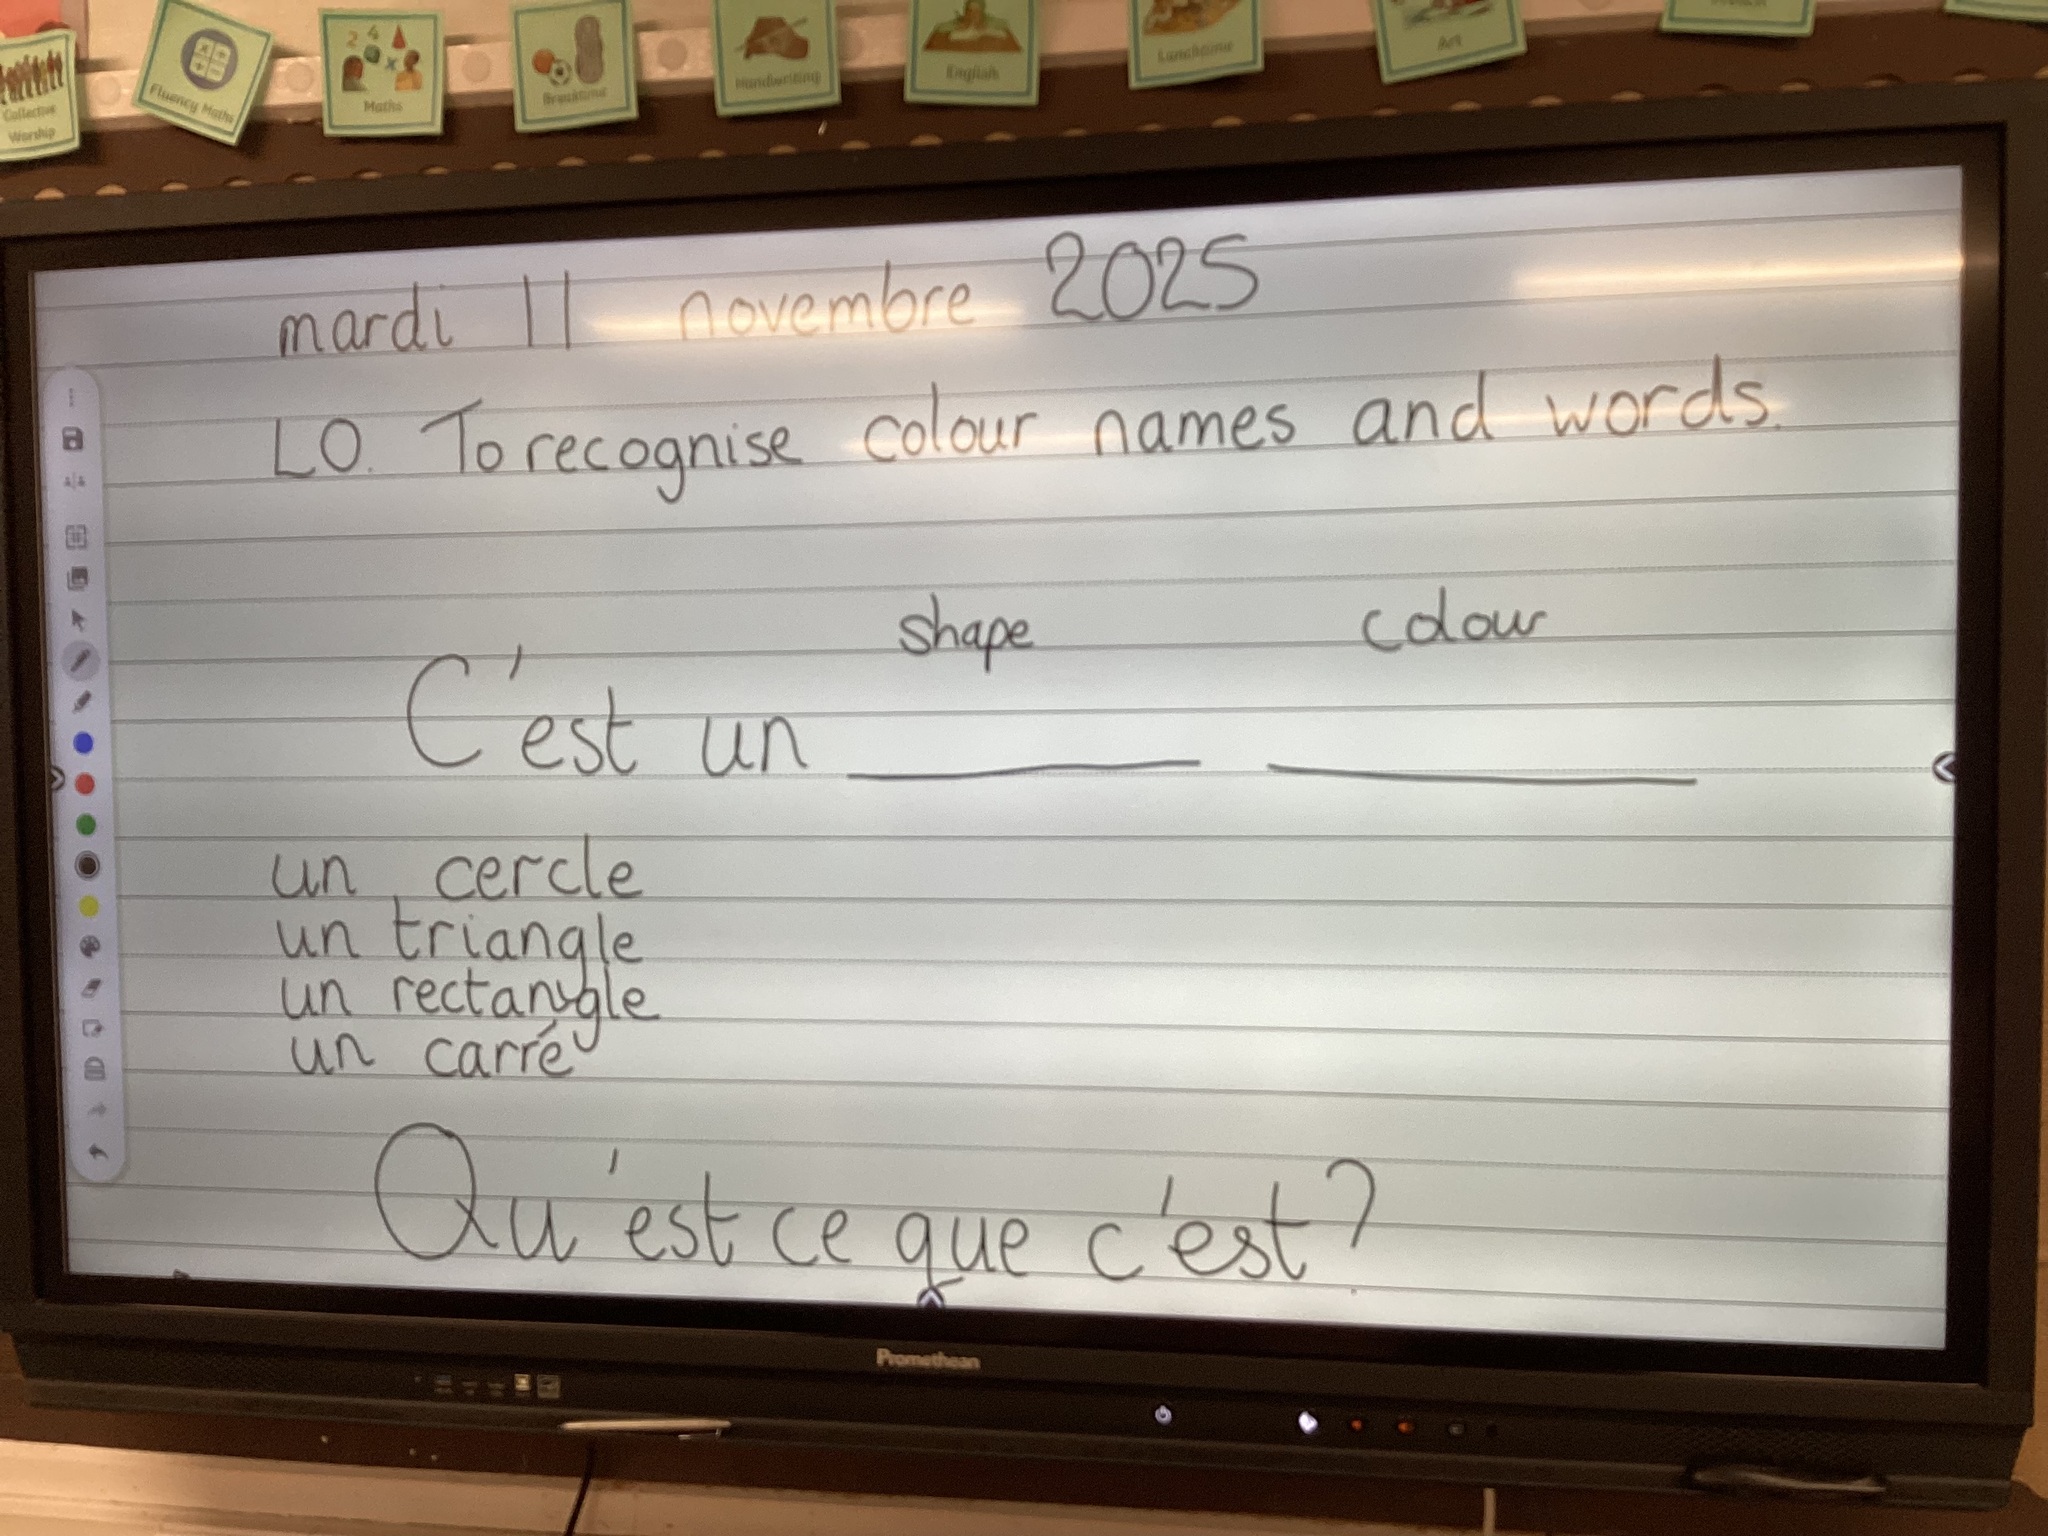 Collective Worship
Fluency Maths
2 4
x
Maths
Breaktime
Handwriting
English
Lunchtime
Art
mardi 11 novembre 2025
LO. To recognise colour names and words.
shape colour
C'est un
un cercle
un triangle
un rectangle
un carré
Qu'est ce que c'est?
Promethean